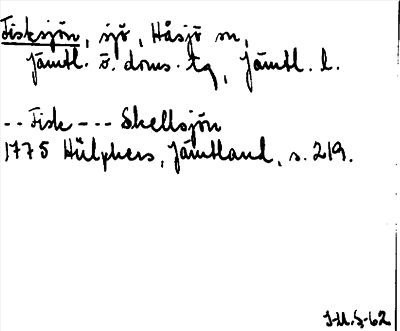 Fisksjön, sjö, Håsjö sn,
Jämtl. ö. doms. tg, Jämtl. l.
-- Fisk --- Skellsjön
1775 Hülphers, Jämtland, s. 219.